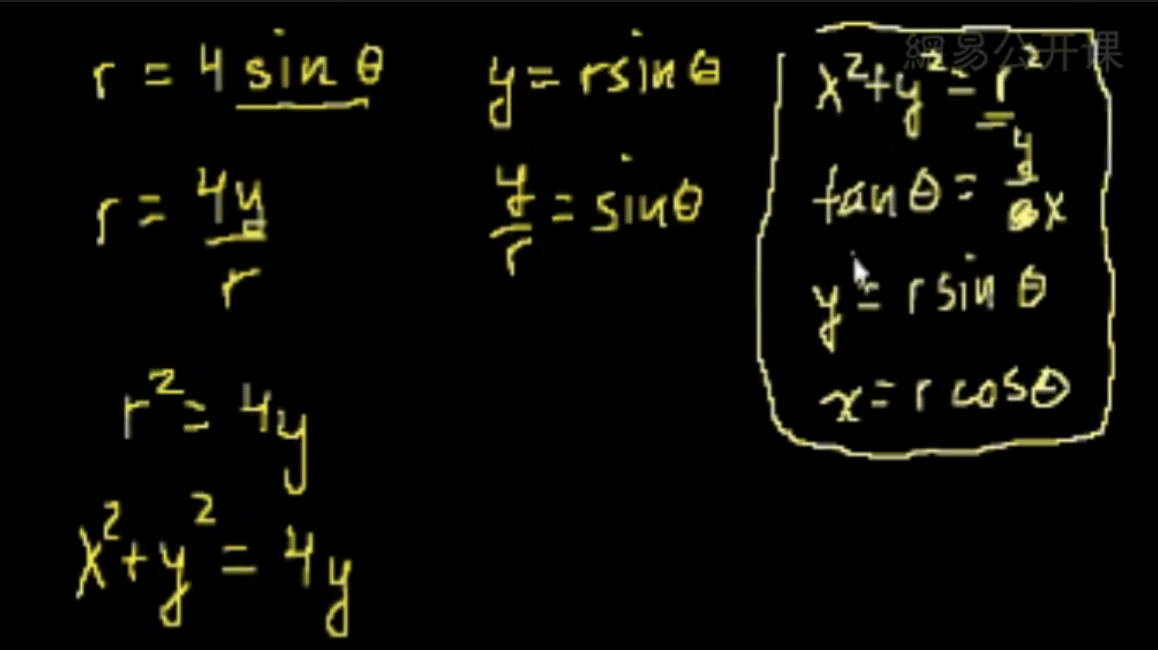 r = 4 sin θ
r = 4y/r
r² = 4y
x² + y² = 4y
y = r sin θ
y/r = sin θ
網易公开课
x² + y² = r²
tan θ = y/x
y = r sin θ
x = r cos θ